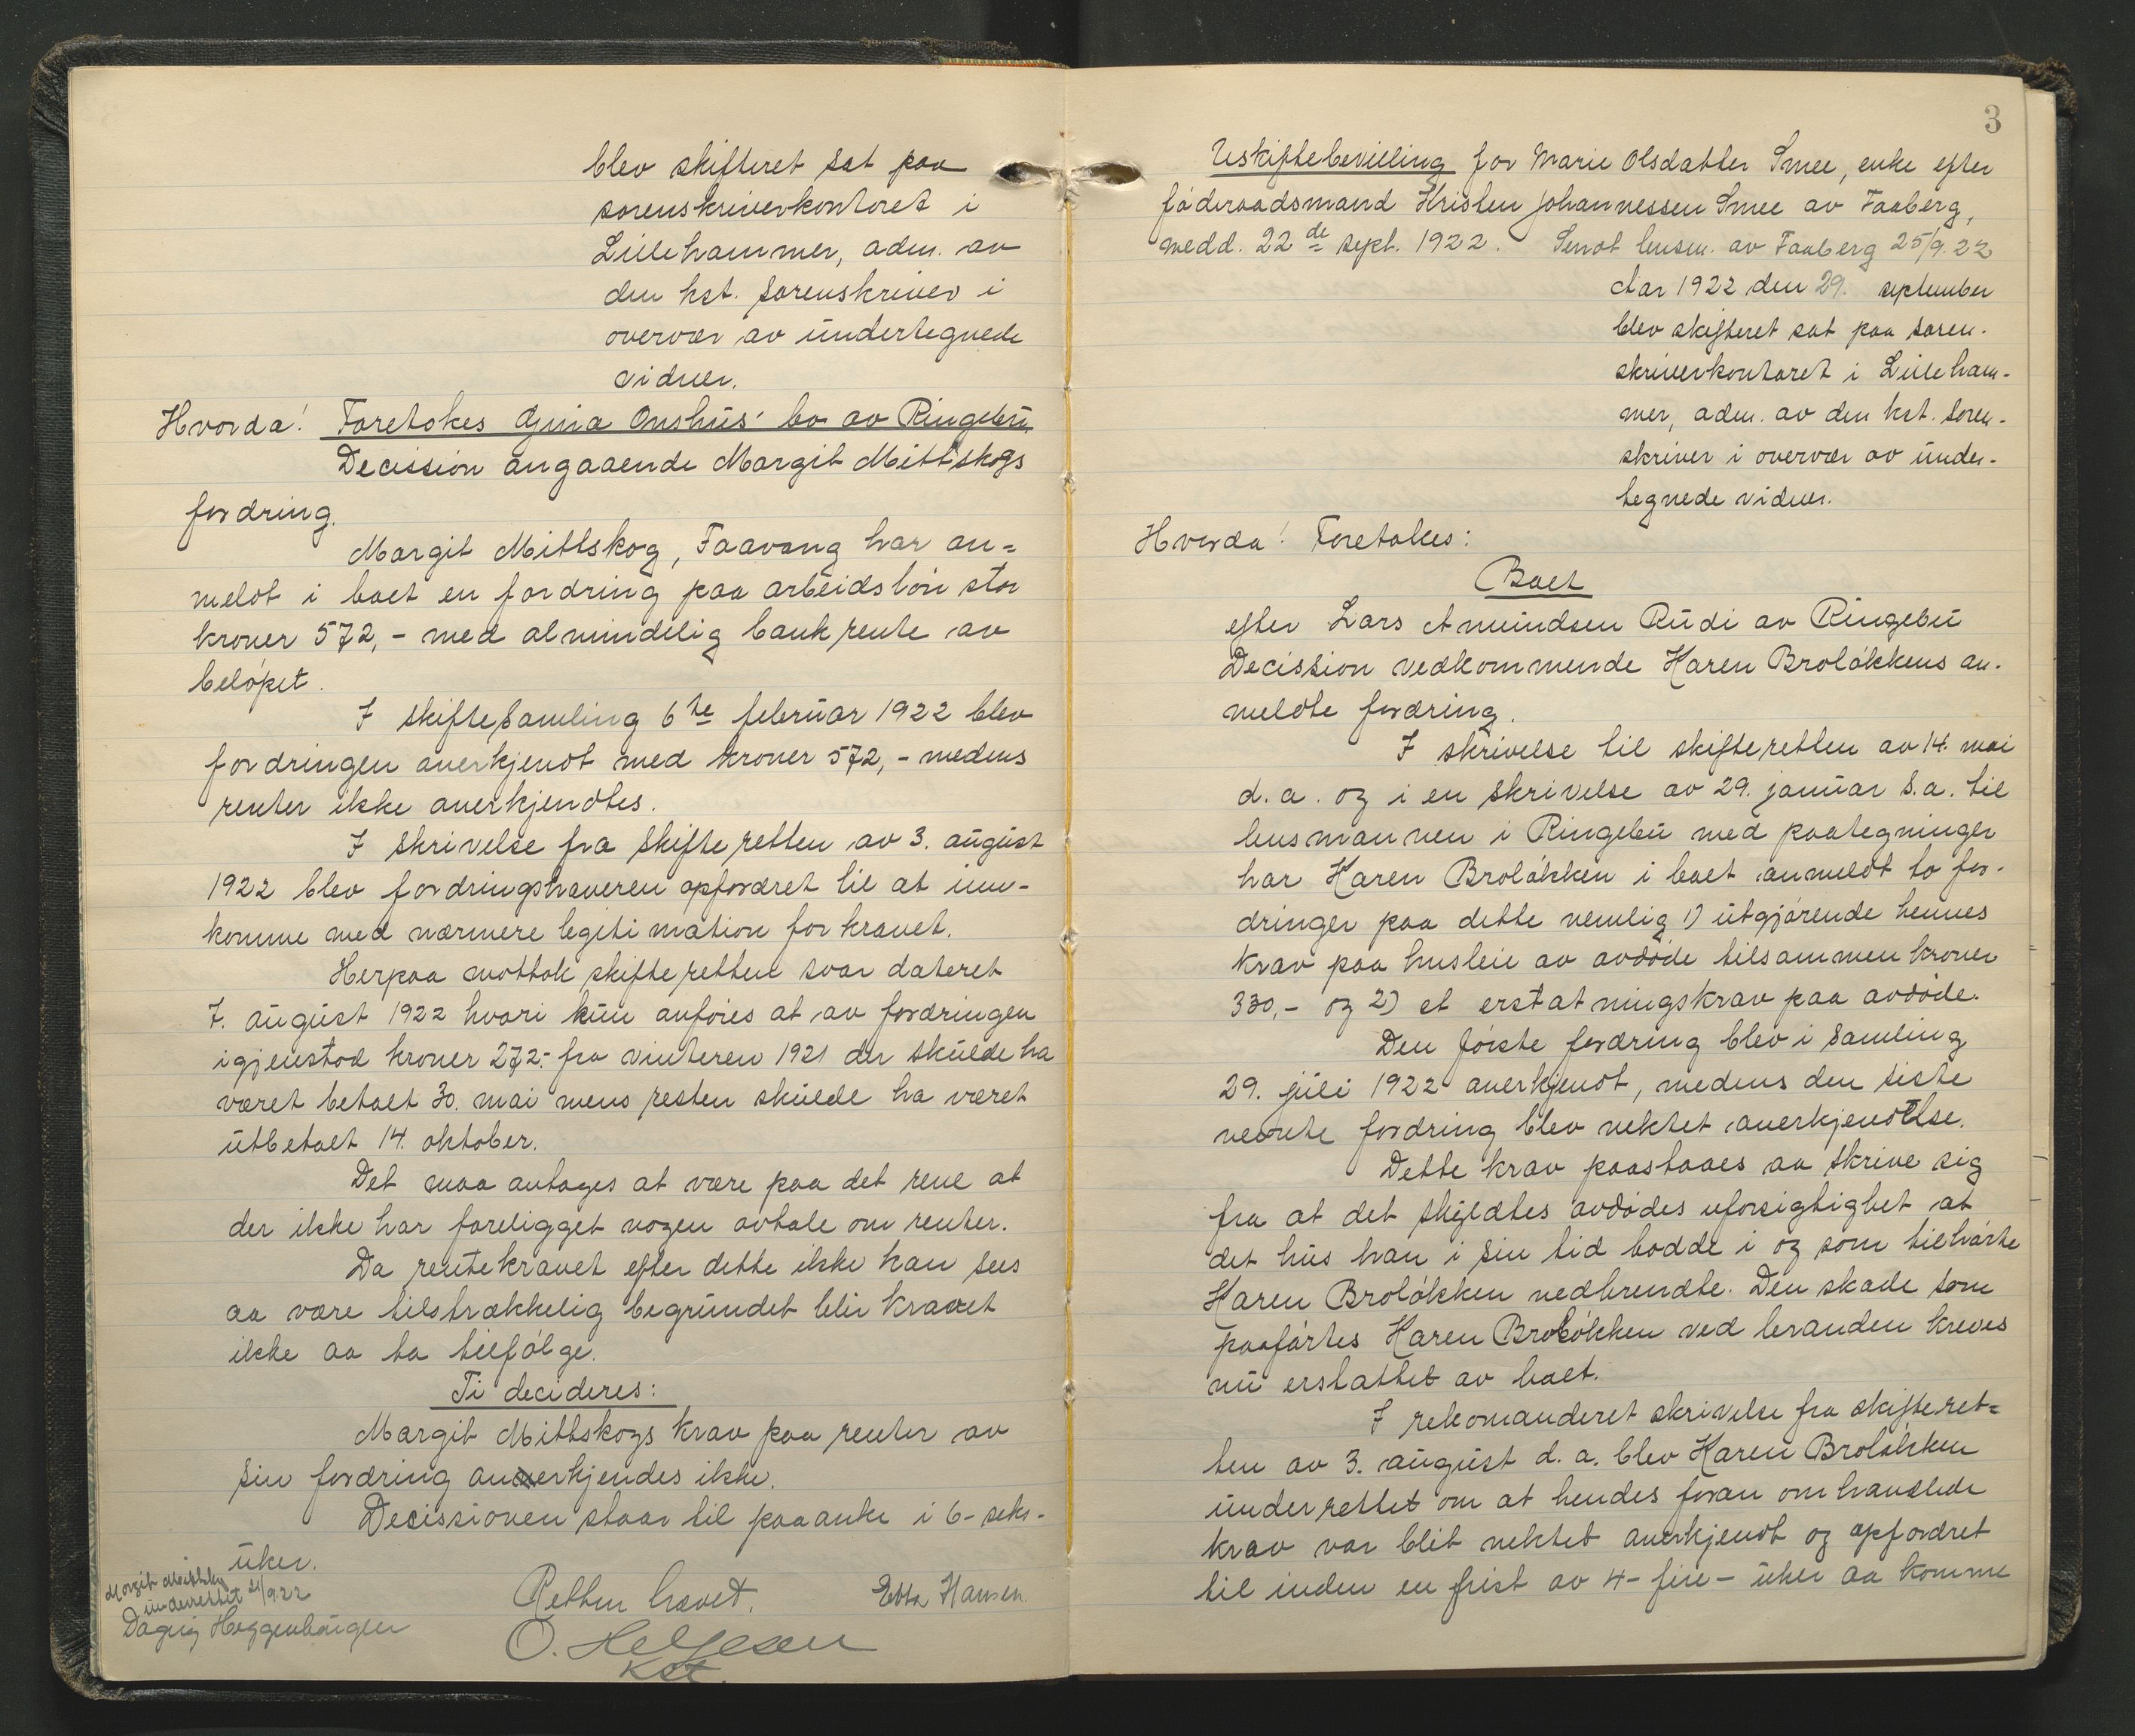 blev skifteret sat paa
sorenskriverkontoret i
Lillehammer, adm. av
den kst. sorenskriver i
overvær av undertegnede
vidner.
Hvorda! Foretokes Gjina Onshus' bo av Ringebu.
Decission angaaende Margit Mittskogs
fordring.
Margit Mittskog, Faavang har an=
meldt i boet en fordring paa arbeidslön stor
kroner 572,- med almindelig bankrente av
belöpet.
I skiftesamling 6te februar 1922 blev
fordringen anerkjendt med kroner 572,- medens
renter ikke anerkjendtes.
I skrivelse fra skifteretten av 3. august
1922 blev fordringshaveren opfordret til at inn-
komme med nærmere legitimation for kravet.
Herpaa mottok skifteretten svar dateret
7. august 1922 hvori kun anföres at av fordringen
igjenstod kroner 272.- fra vinteren 1921 der skulde ha
været betalt 30. mai mens resten skulde ha været
utbetalt 14. oktober.
Det maa antages at være paa det rene at
der ikke har foreligget nogen avtale om renter.
Da rentekravet efter dette ikke kan sees
aa være tilstrækkelig begrundet blir kravet
ikke aa ta tilfölge.
Ti decideres:
Margit Mittskogs krav paa renter av
sin fordring anerkjendes ikke.
Decissionen staar til paaanke i 6- seks-
uker.
Margit Mittskog
underrettet 21/9 22
Dagny Heggenhaugen
Retten hævet.
Ebba Hansen
O. Helgesen
kst.
3
Uskiftebevilling for Marie Olsdatter Smee, enke efter
föderaadsmand Kristen Johannessen Smee av Faaberg,
medd. 22de sept. 1922. Sendt lensm. av Faaberg 25/9. 22
Aar 1922 den 29. september
blev skifteret sat paa soren-
skriverkontoret i Lilleham-
mer, adm. av den kst. soren-
skriver i overvær av under-
tegnede vidner.
Hvorda! Foretokes:
Boet
efter Lars Amundsen Rudi av Ringebu
Decission vedkommende Karen Brolökkens an-
meldte fordring.
I skrivelse til skifteretten av 14. mai
d. a. og i en skrivelse av 29. januar s. a. til
lensmannen i Ringebu med paategninger
har Karen Brolökken i boet anmeldt to for-
dringer paa dette nemlig 1) utgjörende hennes
krav paa husleie av avdöde tilsammen kroner
330,- og 2) et erstatningskrav paa avdöde.
Den förste fordring blev i samling
29. juli 1922 anerkjendt, medens den siste
nevnte fordring blev nektet anerkjendtlse.
Dette krav paastaaes aa skrive sig
fra at det skyldtes avdödes uforsigtighet at
det hus han i sin tid bodde i og som tilhörte
Karen Brolökken nedbrendte. Den skade som
paaförtes Karen Brolökken ved branden kreves
nu erstattet av boet.
I rekomanderet skrivelse fra skifteret=
ten av 3. august d. a. blev Karen Brolökken
underrettet om at hendes foran omhandlede
krav var blit nektet anerkjendt og opfordret
til inden en frist av 4- fire- uker aa komme